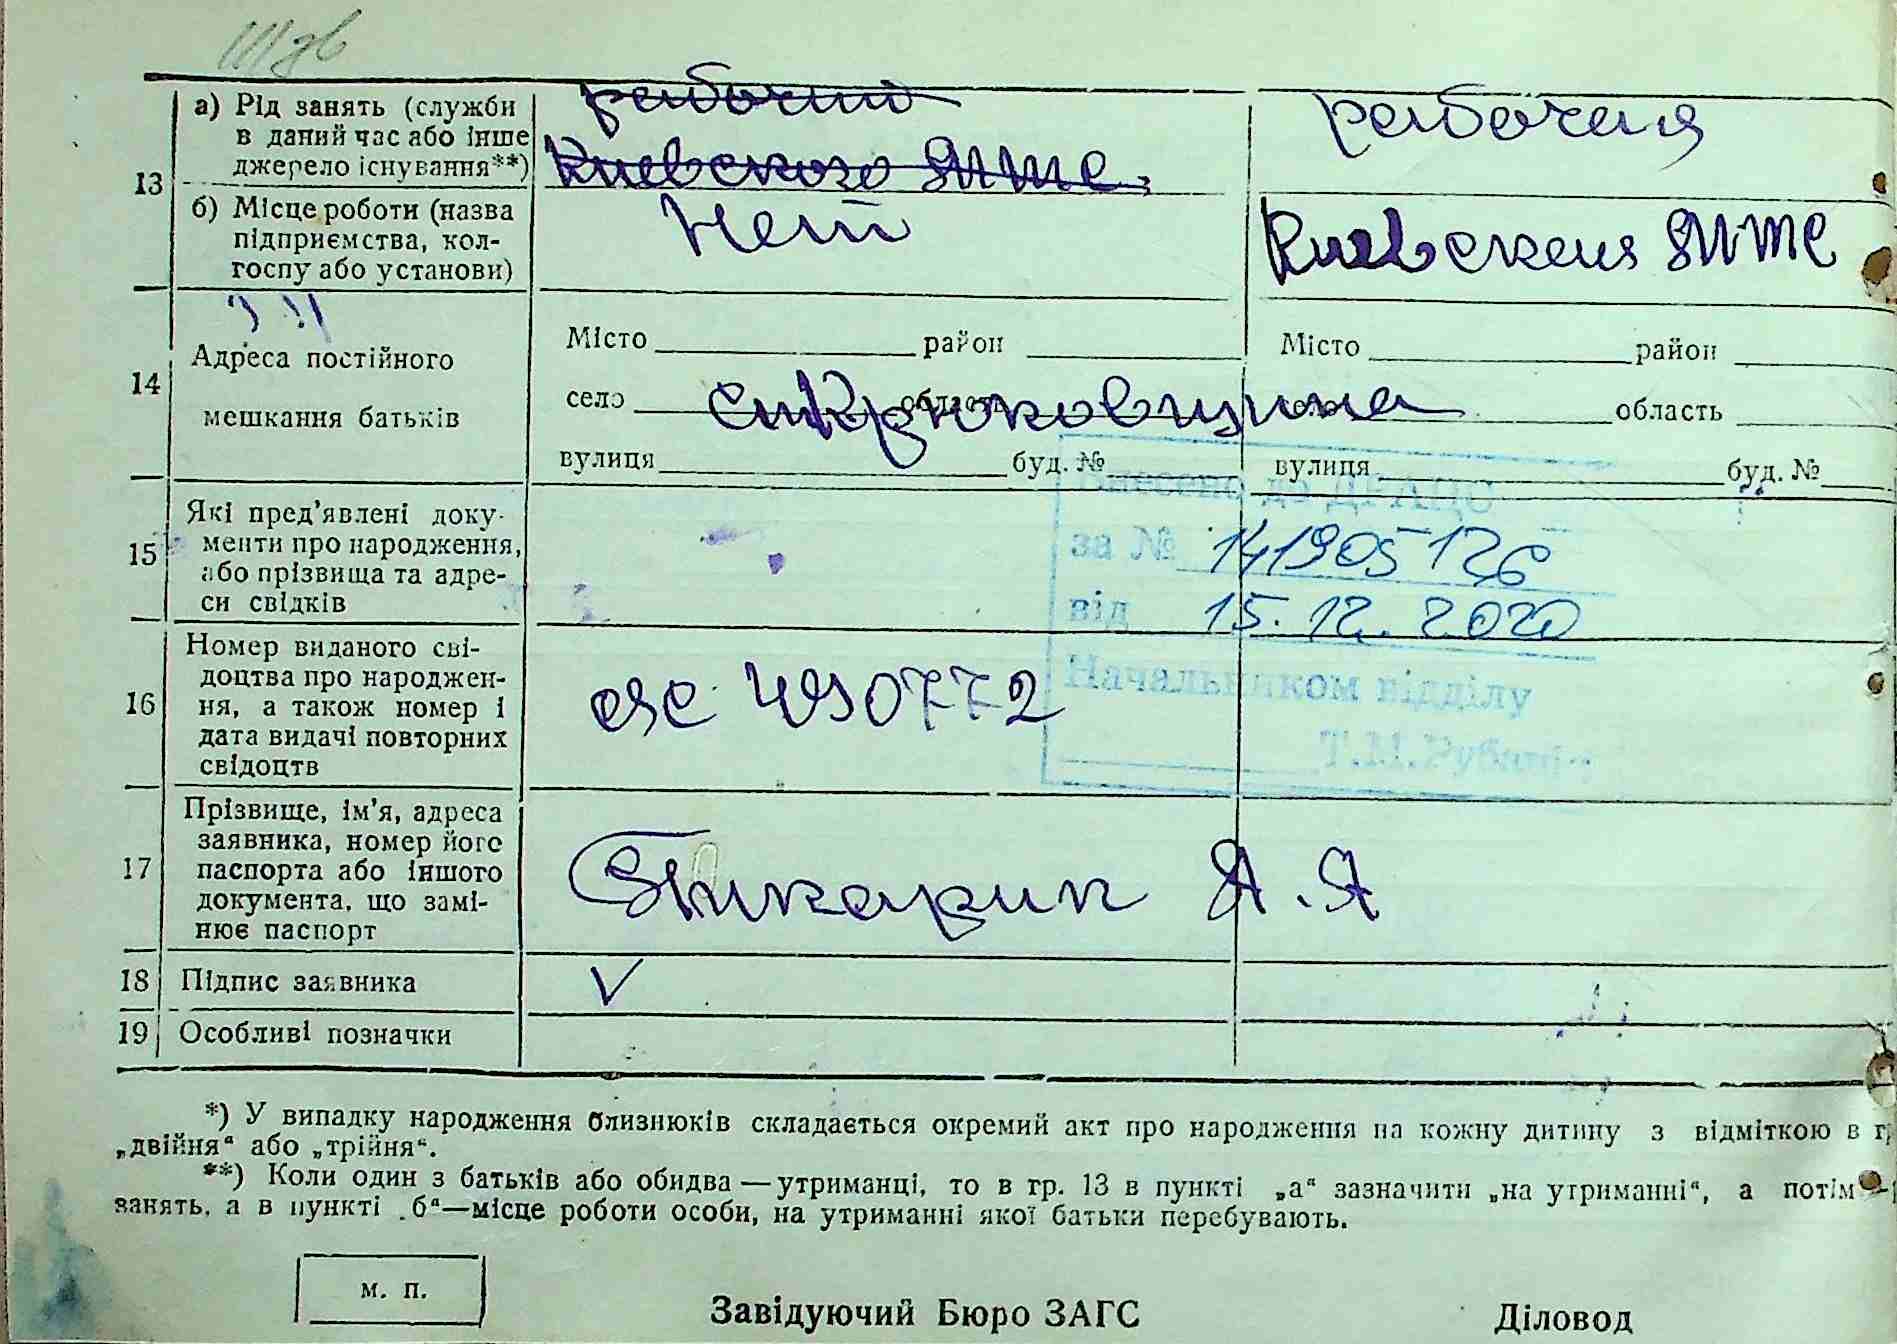 рабочий
Киевского ЯМТС
рабочая
13
а) Рід занять (служби
в даний час або інше
джерело існування**)
б) Місце роботи (назва
підприємства, кол-
госпу або установи)
Нет
Киевская ЯМТС
14
Адреса постійного
мешкання батьків
Місто район
село область
вулиця буд. №
Місто район
село область
вулиця буд. №
с Крюковщина
15
Які пред'явлені доку-
менти про народження,
або прізвища та адре-
си свідків
Внесено до ДРАЦС
за № 141905126
від 15.12.2020
Начальником відділу
Т.М.
16
Номер виданого сві-
доцтва про народжен-
ня, а також номер і
дата видачі повторних
свідоцтв
490772
17
Прізвище, ім'я, адреса
заявника, номер його
паспорта або іншого
документа, що замі-
нює паспорт
Я. Я
18 Підпис заявника
V
19 Особливі позначки
*) У випадку народження близнюків складається окремий акт про народження на кожну дитину з відміткою в г
„двійня“ або „трійня“.
**) Коли один з батьків або обидва — утриманці, то в гр. 13 в пункті „а“ зазначити „на утриманні“, а потім
занять, а в пункті „б“—місце роботи особи, на утриманні якої батьки перебувають.
м. п.
Завідуючий Бюро ЗАГС
Діловод